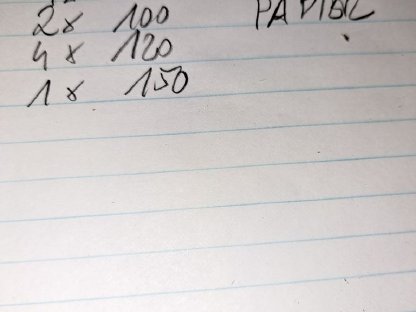 2x 100 PAPIER
4x 120
1x 150